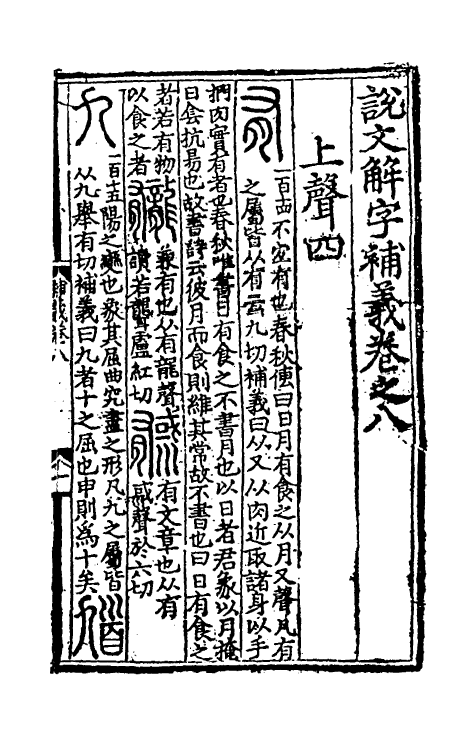 說文解字補義卷之八
上聲四
有
一百十四不宜有也春秋傳曰日月有食之从月又聲凡有
之屬皆从有云九切補義曰从又从肉近取諸身以手
捫肉實有者也春秋唯書日有食之不書月也以日者君象以月掩
日會抗易也故書詩云彼月而食則維其常故不書也曰日有食之
者若有物
以食之者
龓
兼有也从有龍聲
讀若聾盧紅切
有文章也从有
聲於六切
九
一百十五陽之變也象其屈曲究盡之形凡九之屬皆
从九舉有切補義曰九者十之屈也申則為十矣
馗
補義卷八